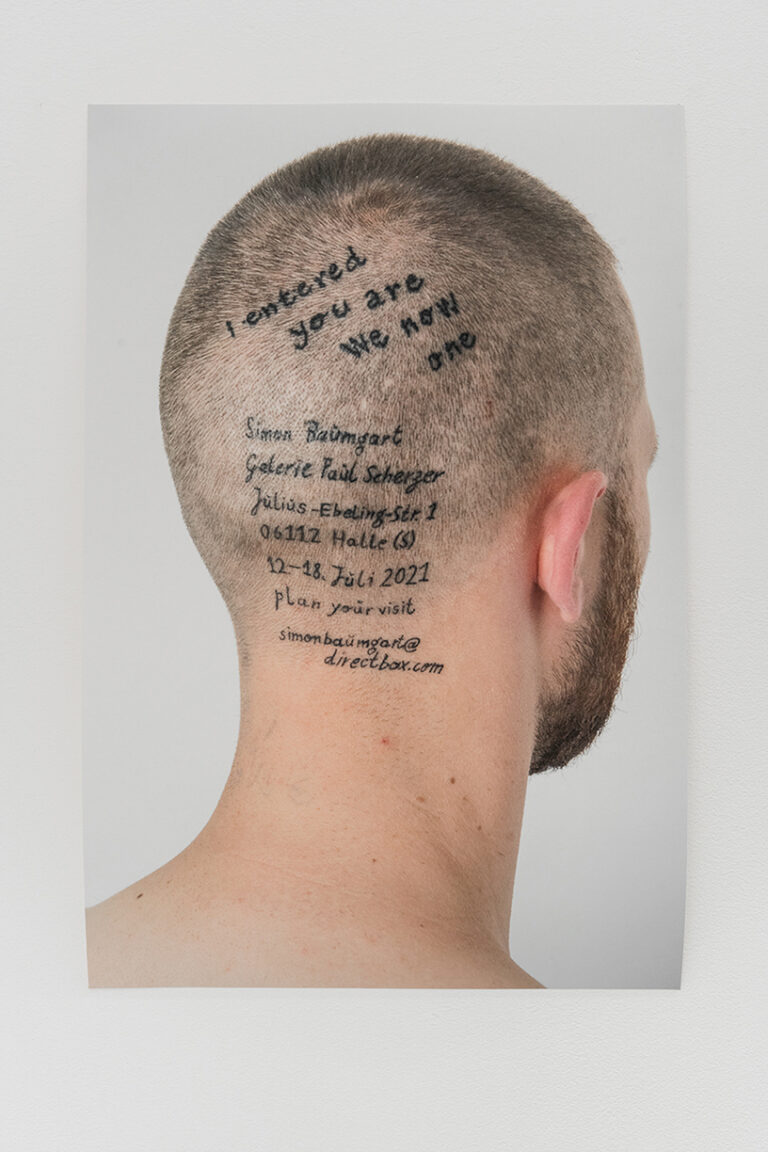 I entered
you are
We now
one
Simon Baŭmgart
Galerie Paŭl Scherzer
Jŭliŭs-Ebeling-Str. 1
06112 Halle (S)
12–18. Jŭli 2021
plan yoŭr visit
simonbaŭmgart@
directbox.com